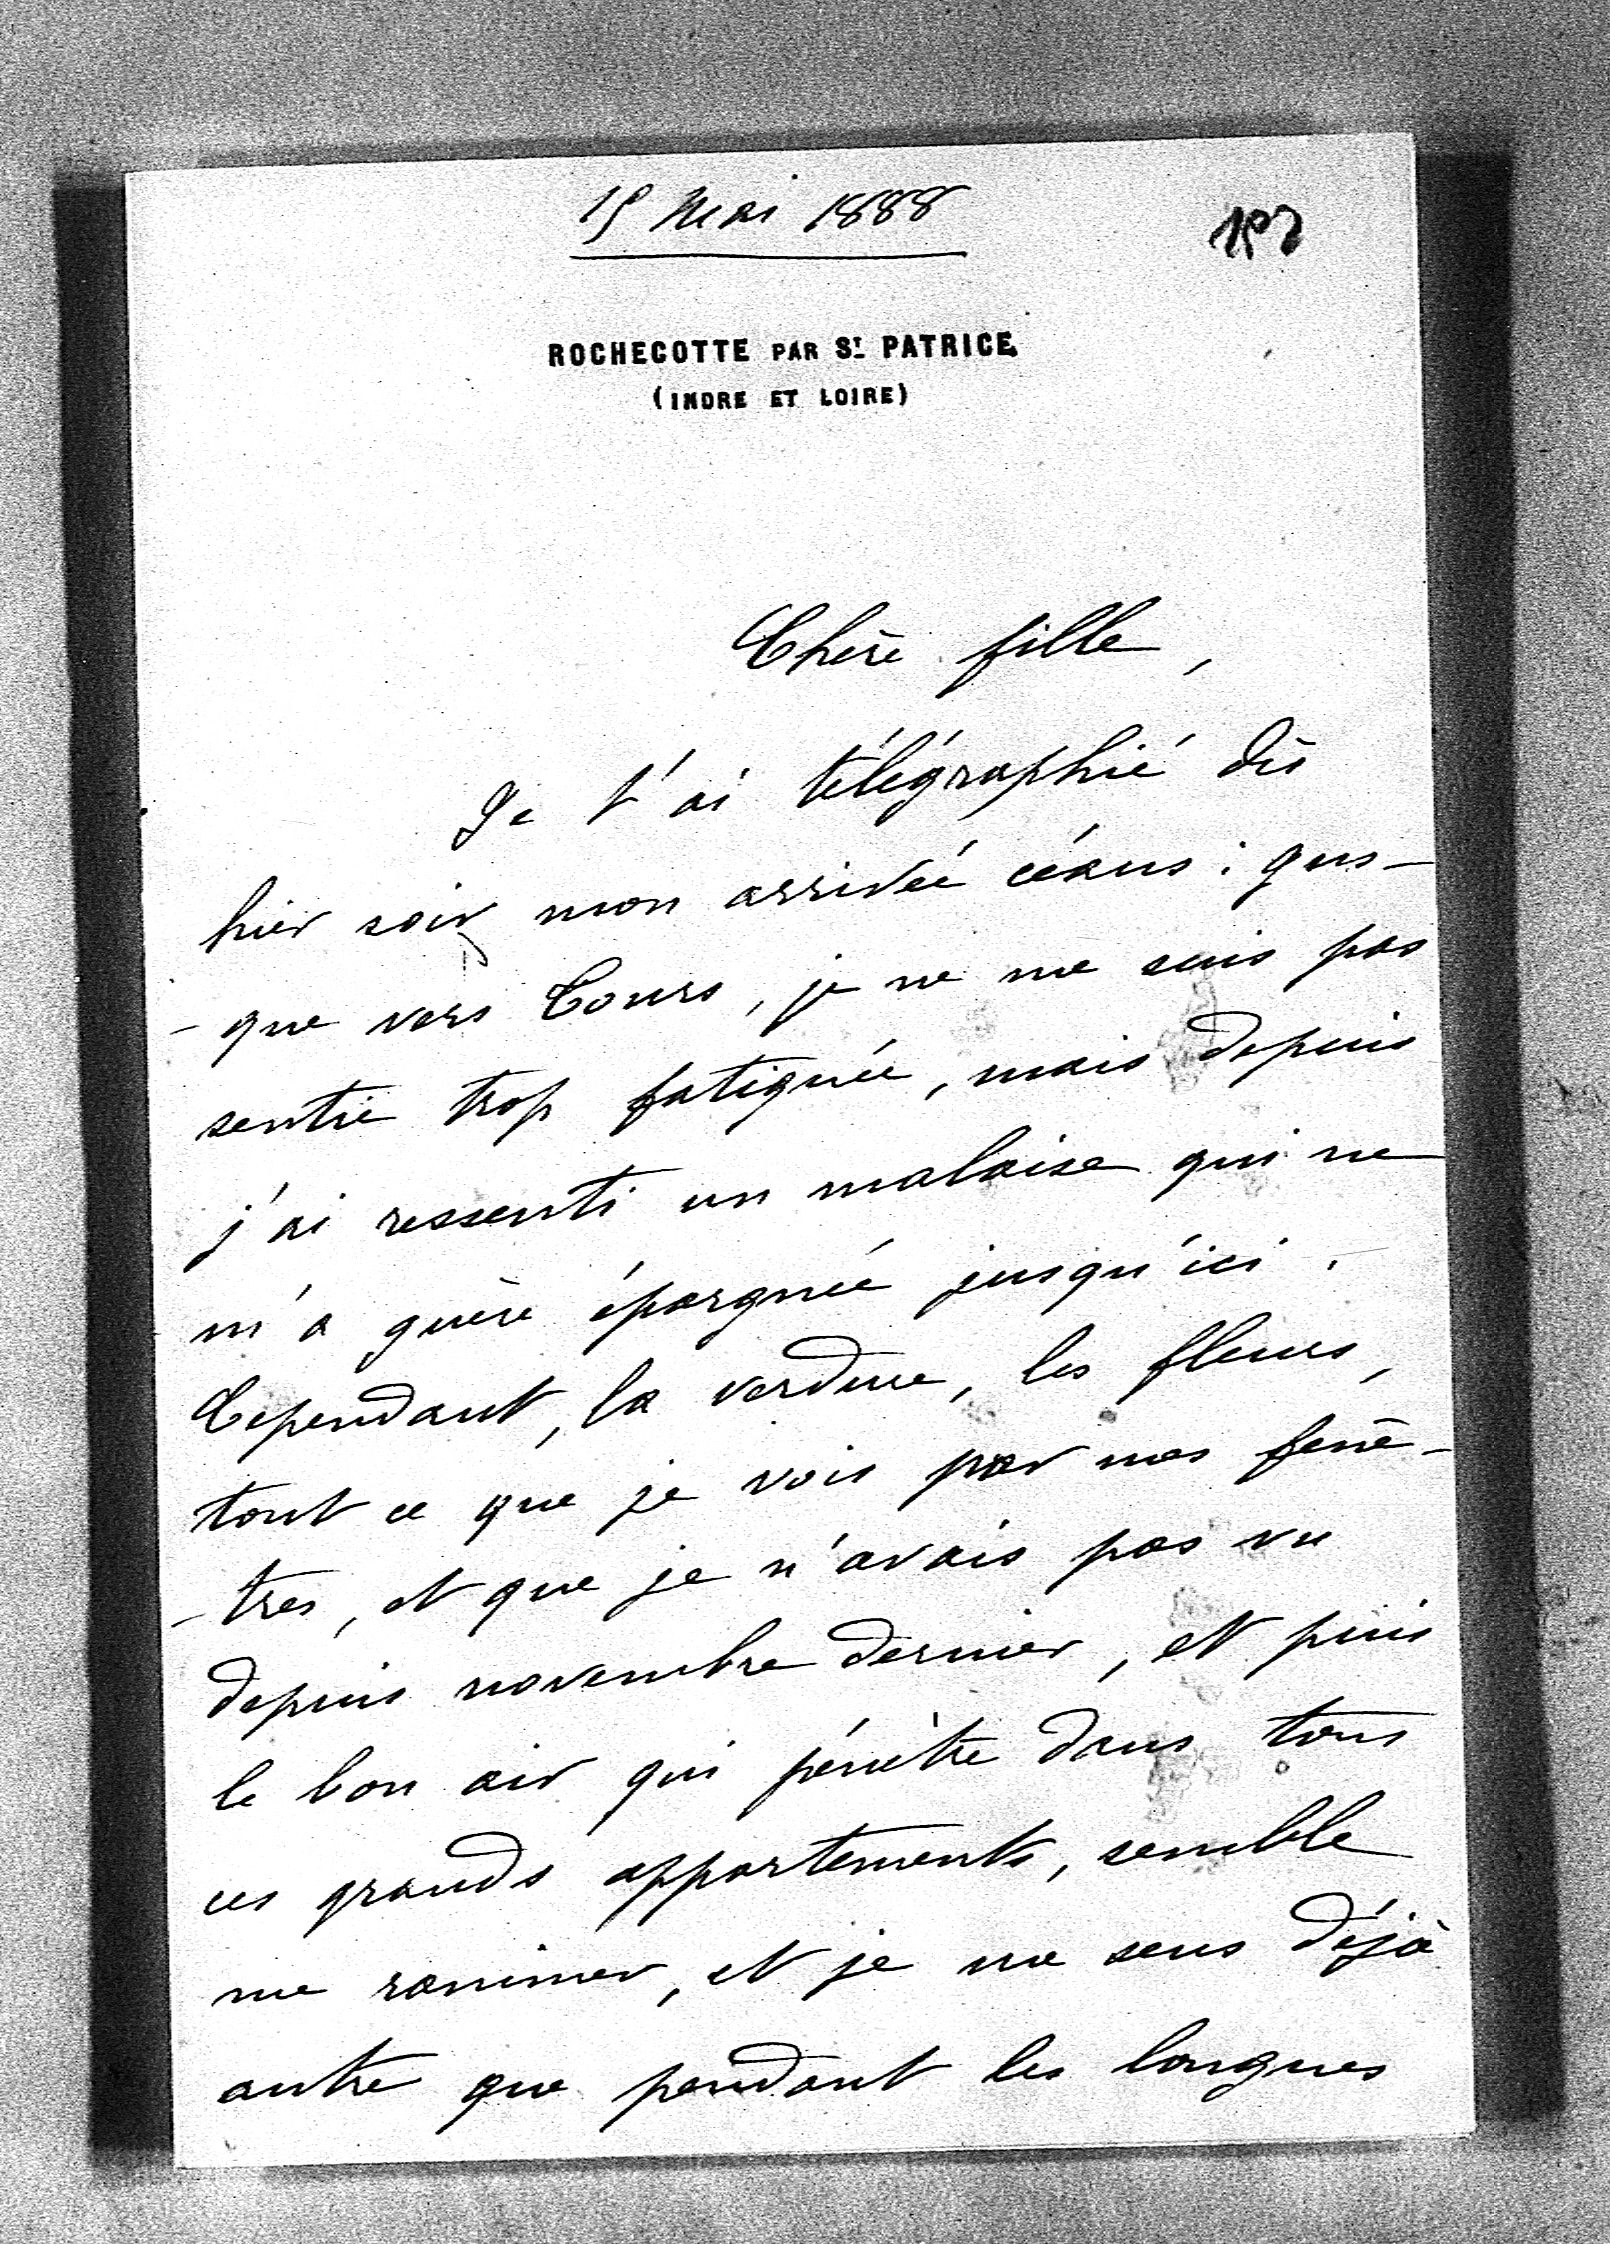 15 Mai 1888
ROCHECOTTE PAR ST. PATRICE
(INDRE ET LOIRE)
Chère fille,
Je t'ai télégraphié dès
hier soir mon arrivée céans : jus-
-que vers Tours, je ne me suis pas
sentie trop fatiguée, mais depuis
j'ai ressenti un malaise qui ne
m'a guère épargnée jusqu'ici.
Cependant, la verdure, les fleurs,
tout ce que je vois par mes fenê-
-tres, et que je n'avais pas vu
depuis novembre dernier, et puis
le bon air qui pénètre dans tous
ces grands appartements, semble
me ranimer, et je me sens déjà
autre que pendant les longues